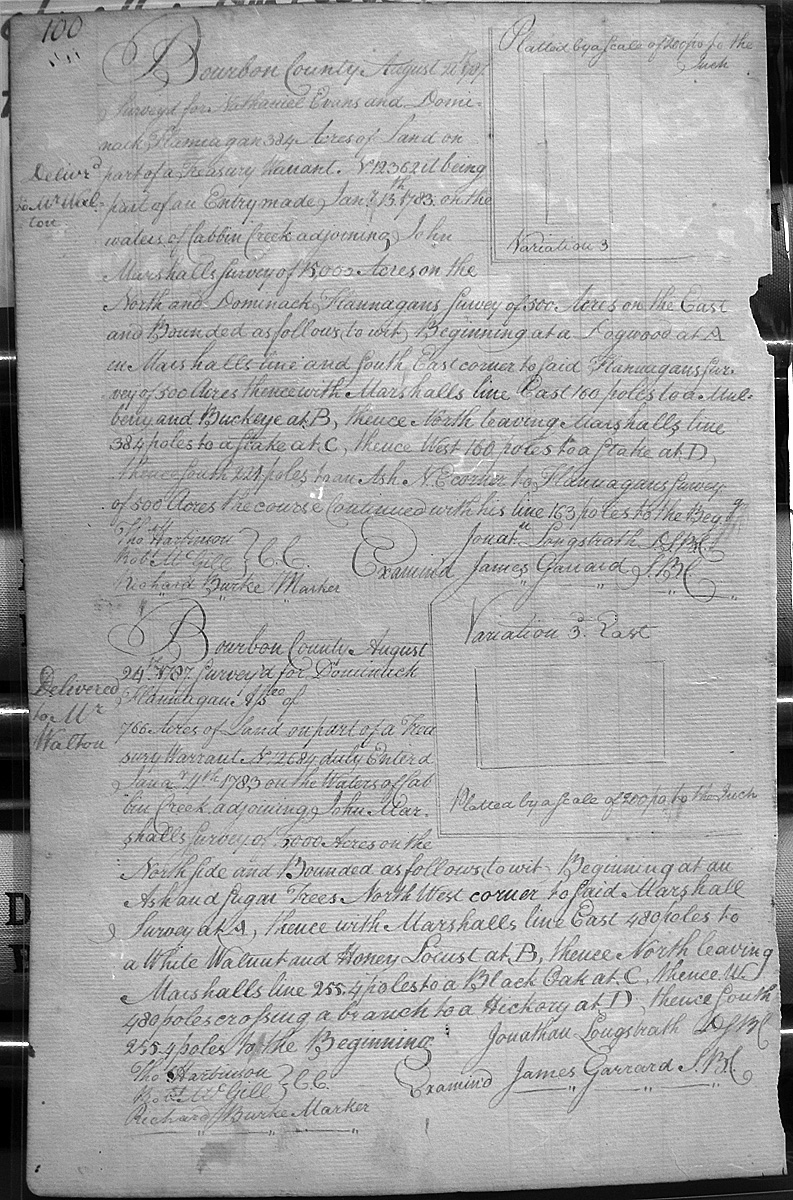 100
Bourbon County August
Platted by a Scale of 200 po to the
Inch
Survey'd for Nathaniel Evans and Domi-
nack Flannagan 384 Acres of Land on
Deliv'd
to Mr Wal-
ton
part of a Treasury Warrant N 12362 it being
part of an Entry made Jany 13th 1783 on the
waters of Cabbin Creek adjoining John
Variation 3
Marshalls Survey of 15,000 Acres on the
North and Dominack Flannagans Survey of 500 Acres on the East
and Bounded as follows, to wit, Beginning at a Dogwood at A
in Marshalls line and South East corner to said Flannagans Sur-
vey of 500 Acres thence with Marshalls line East 160 poles to a Mul-
berry and Buckeye at B, thence North leaving Marshalls line
384 poles to a stake at C, thence West 160 poles to a stake at D,
thence South 221 poles to an Ash N.E corner to Flannagans Survey
of 500 Acres the course Continued with his line 163 poles to the Beg'g
Tho Harbinson
Rob't McGill } C.C.
Richard Burke Marker
Jonatn Longstrath D.S.B.C.
Examin'd James Garrard S.B.C
Bourbon County August
24th 1787 Survey'd for Dominick
Flannagan Assee of
Delivered
to Mr
Walton
Variation 3° East
766 Acres of Land on part of a Trea
sury Warrant N. 2684 duly Enter'd
Janay 11th 1783 on the Waters of Cab
bin Creek adjoining John Mar-
shalls Survey of 15000 Acres on the
Platted by a Scale of 200 po. to the Inch
North side and Bounded as follows, to wit, Beginning at an
Ash and Sugar Trees North West corner to said Marshall
Survey at A, thence with Marshalls line East 480 poles to
a White Walnut and Honey Locust at B, thence North leaving
Marshalls line 255.4 poles to a Black Oak at C, thence W
480 poles crossing a branch to a Hickory at D, thence South
255.4 poles to the Beginning
Tho Harbinson
Rob't McGill } C.C.
Richard Burke Marker
Jonathan Longstrath D S B C
Examin'd James Garrard S.B.C